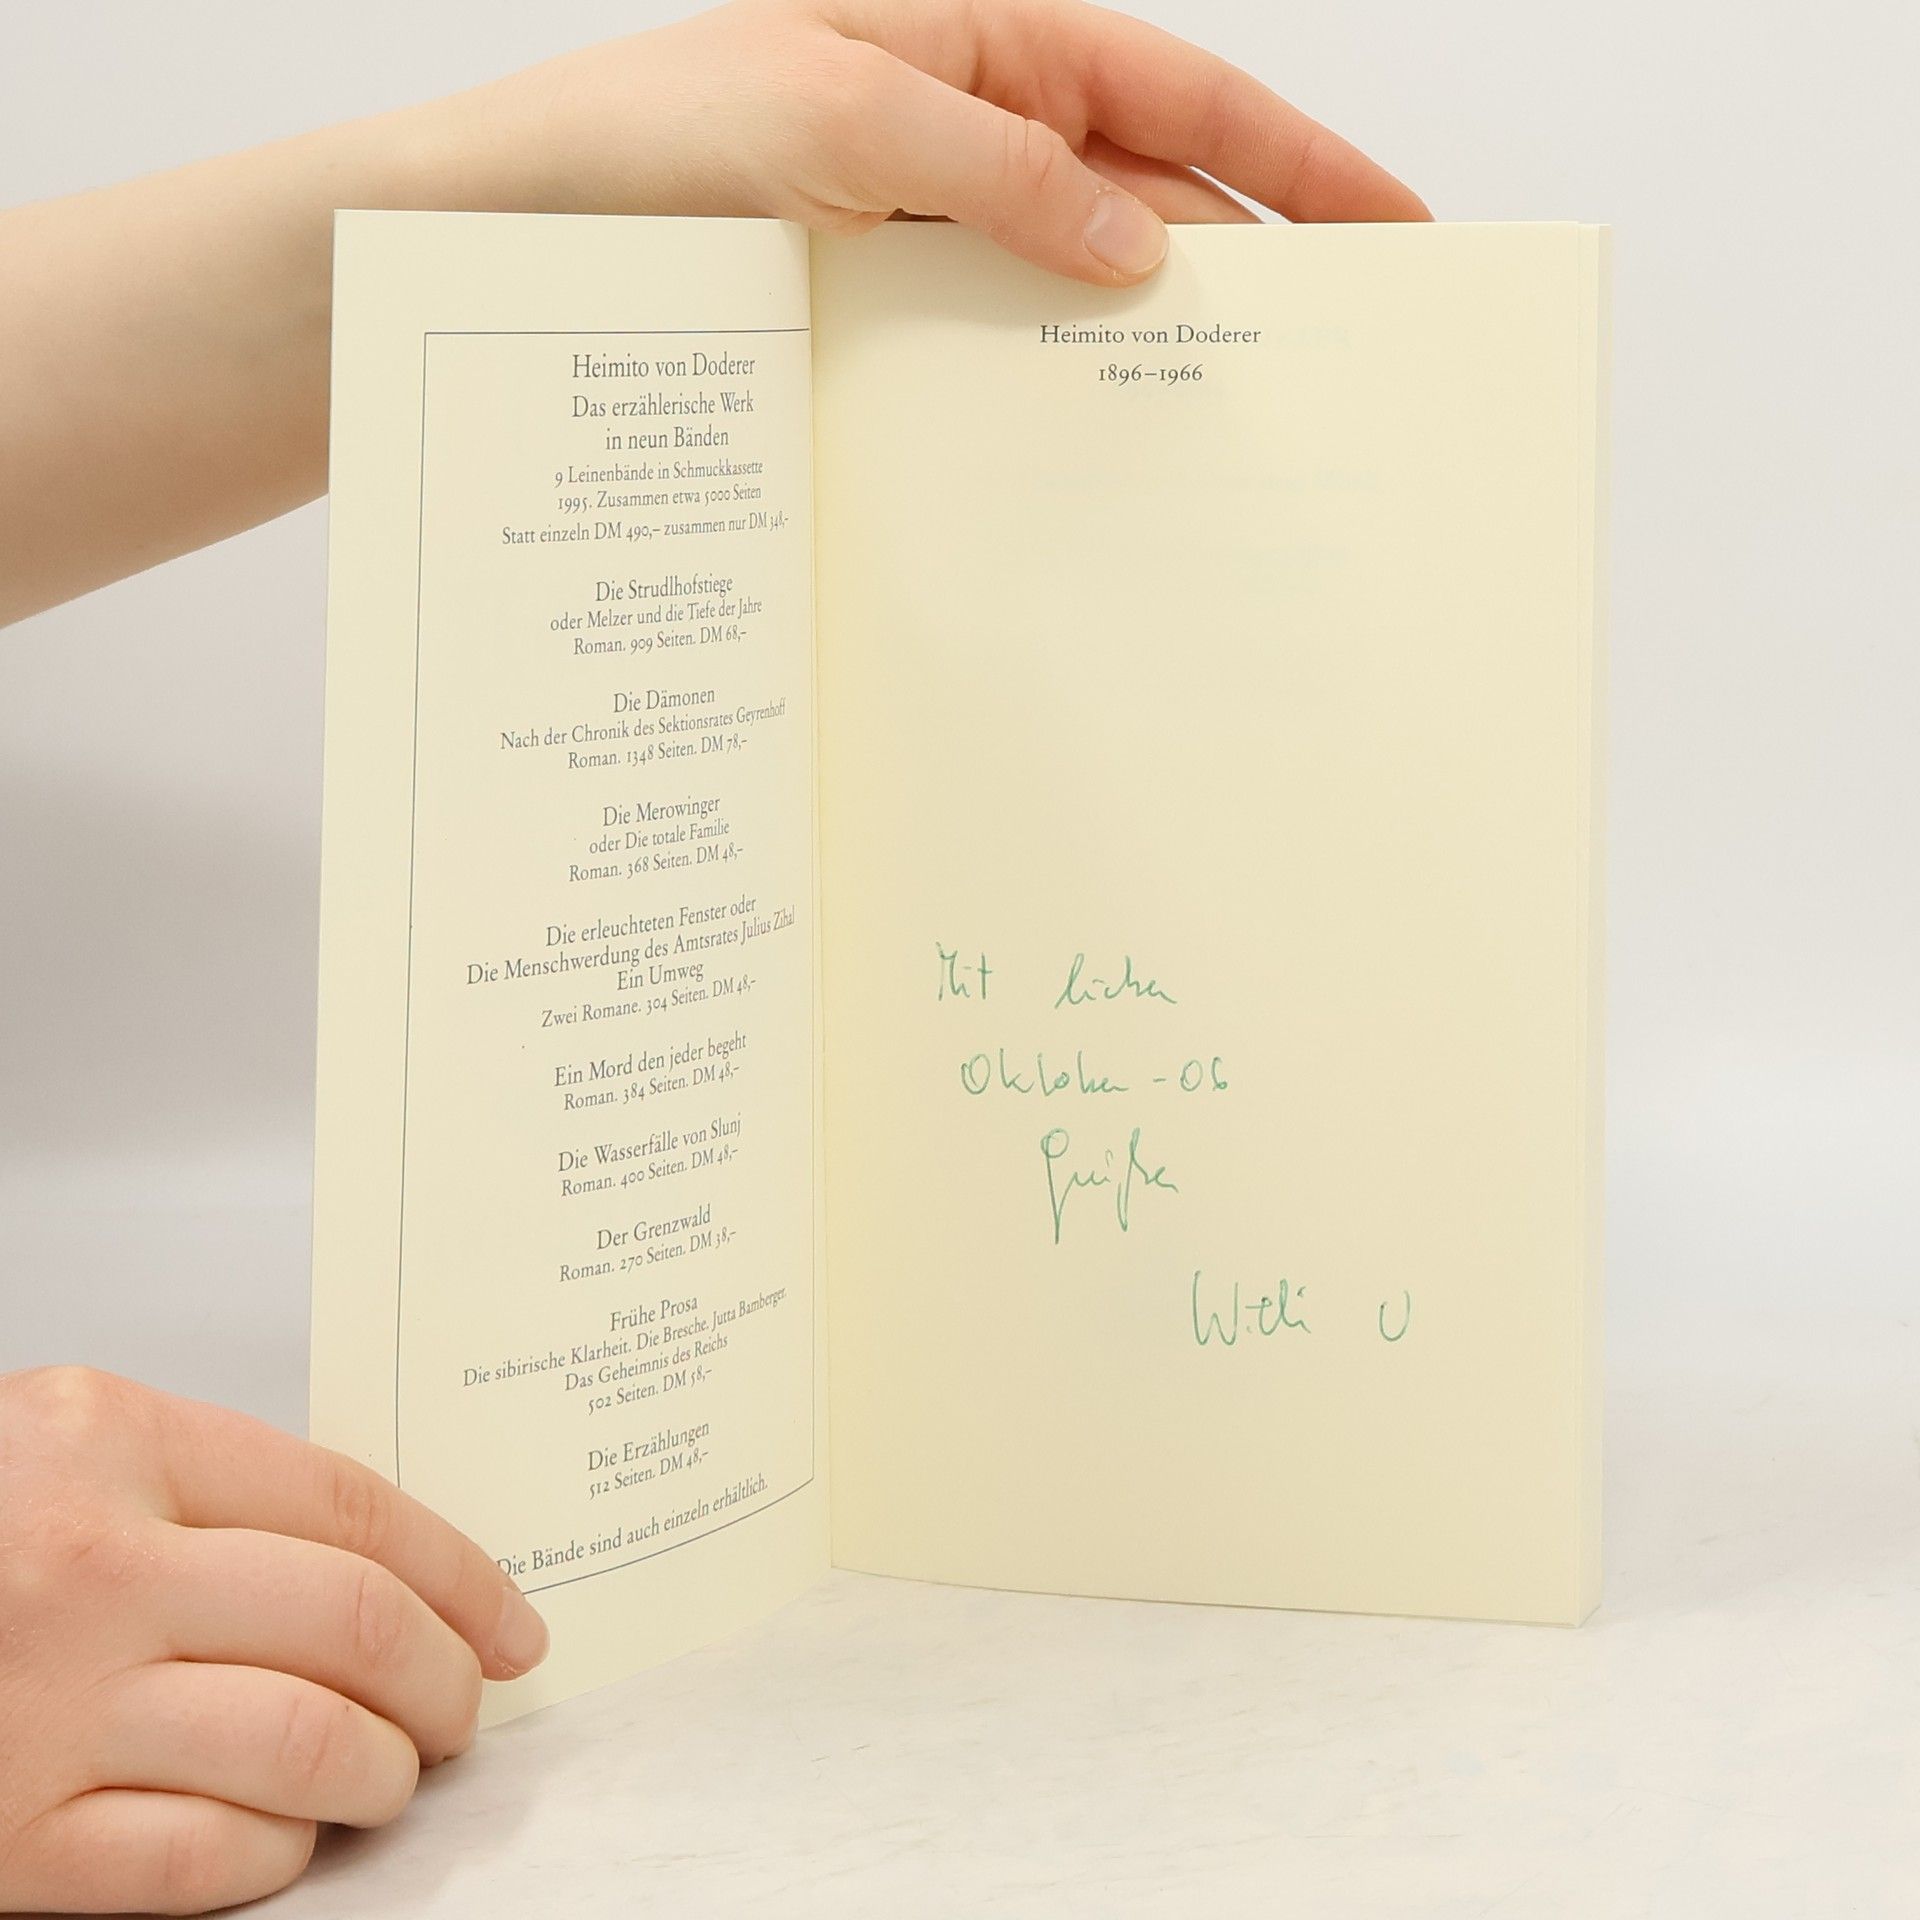 Heimito von Doderer
Das erzählerische Werk
in neun Bänden
9 Leinenbände in Schmuckkassette
1995. Zusammen etwa 5000 Seiten
Statt einzeln DM 490,– zusammen nur DM 348,-
Die Strudlhofstiege
oder Melzer und die Tiefe der Jahre
Roman. 909 Seiten. DM 68,–
Die Dämonen
Nach der Chronik des Sektionsrates Geyrenhoff
Roman. 1348 Seiten. DM 78,–
Die Merowinger
oder Die totale Familie
Roman. 368 Seiten. DM 48,–
Die erleuchteten Fenster oder
Die Menschwerdung des Amtsrates Julius Zihal
Ein Umweg
Zwei Romane. 304 Seiten. DM 48,–
Ein Mord den jeder begeht
Roman. 384 Seiten. DM 48,–
Die Wasserfälle von Slunj
Roman. 400 Seiten. DM 48,–
Der Grenzwald
Roman. 270 Seiten. DM 38,–
Frühe Prosa
Die sibirische Klarheit. Die Bresche. Jutta Bamberger.
Das Geheimnis des Reichs
502 Seiten. DM 58,–
Die Erzählungen
512 Seiten. DM 48,–
Die Bände sind auch einzeln erhältlich.
Heimito von Doderer
1896–1966
Mit lieben
Oktober -06
Grüßen
Willi U